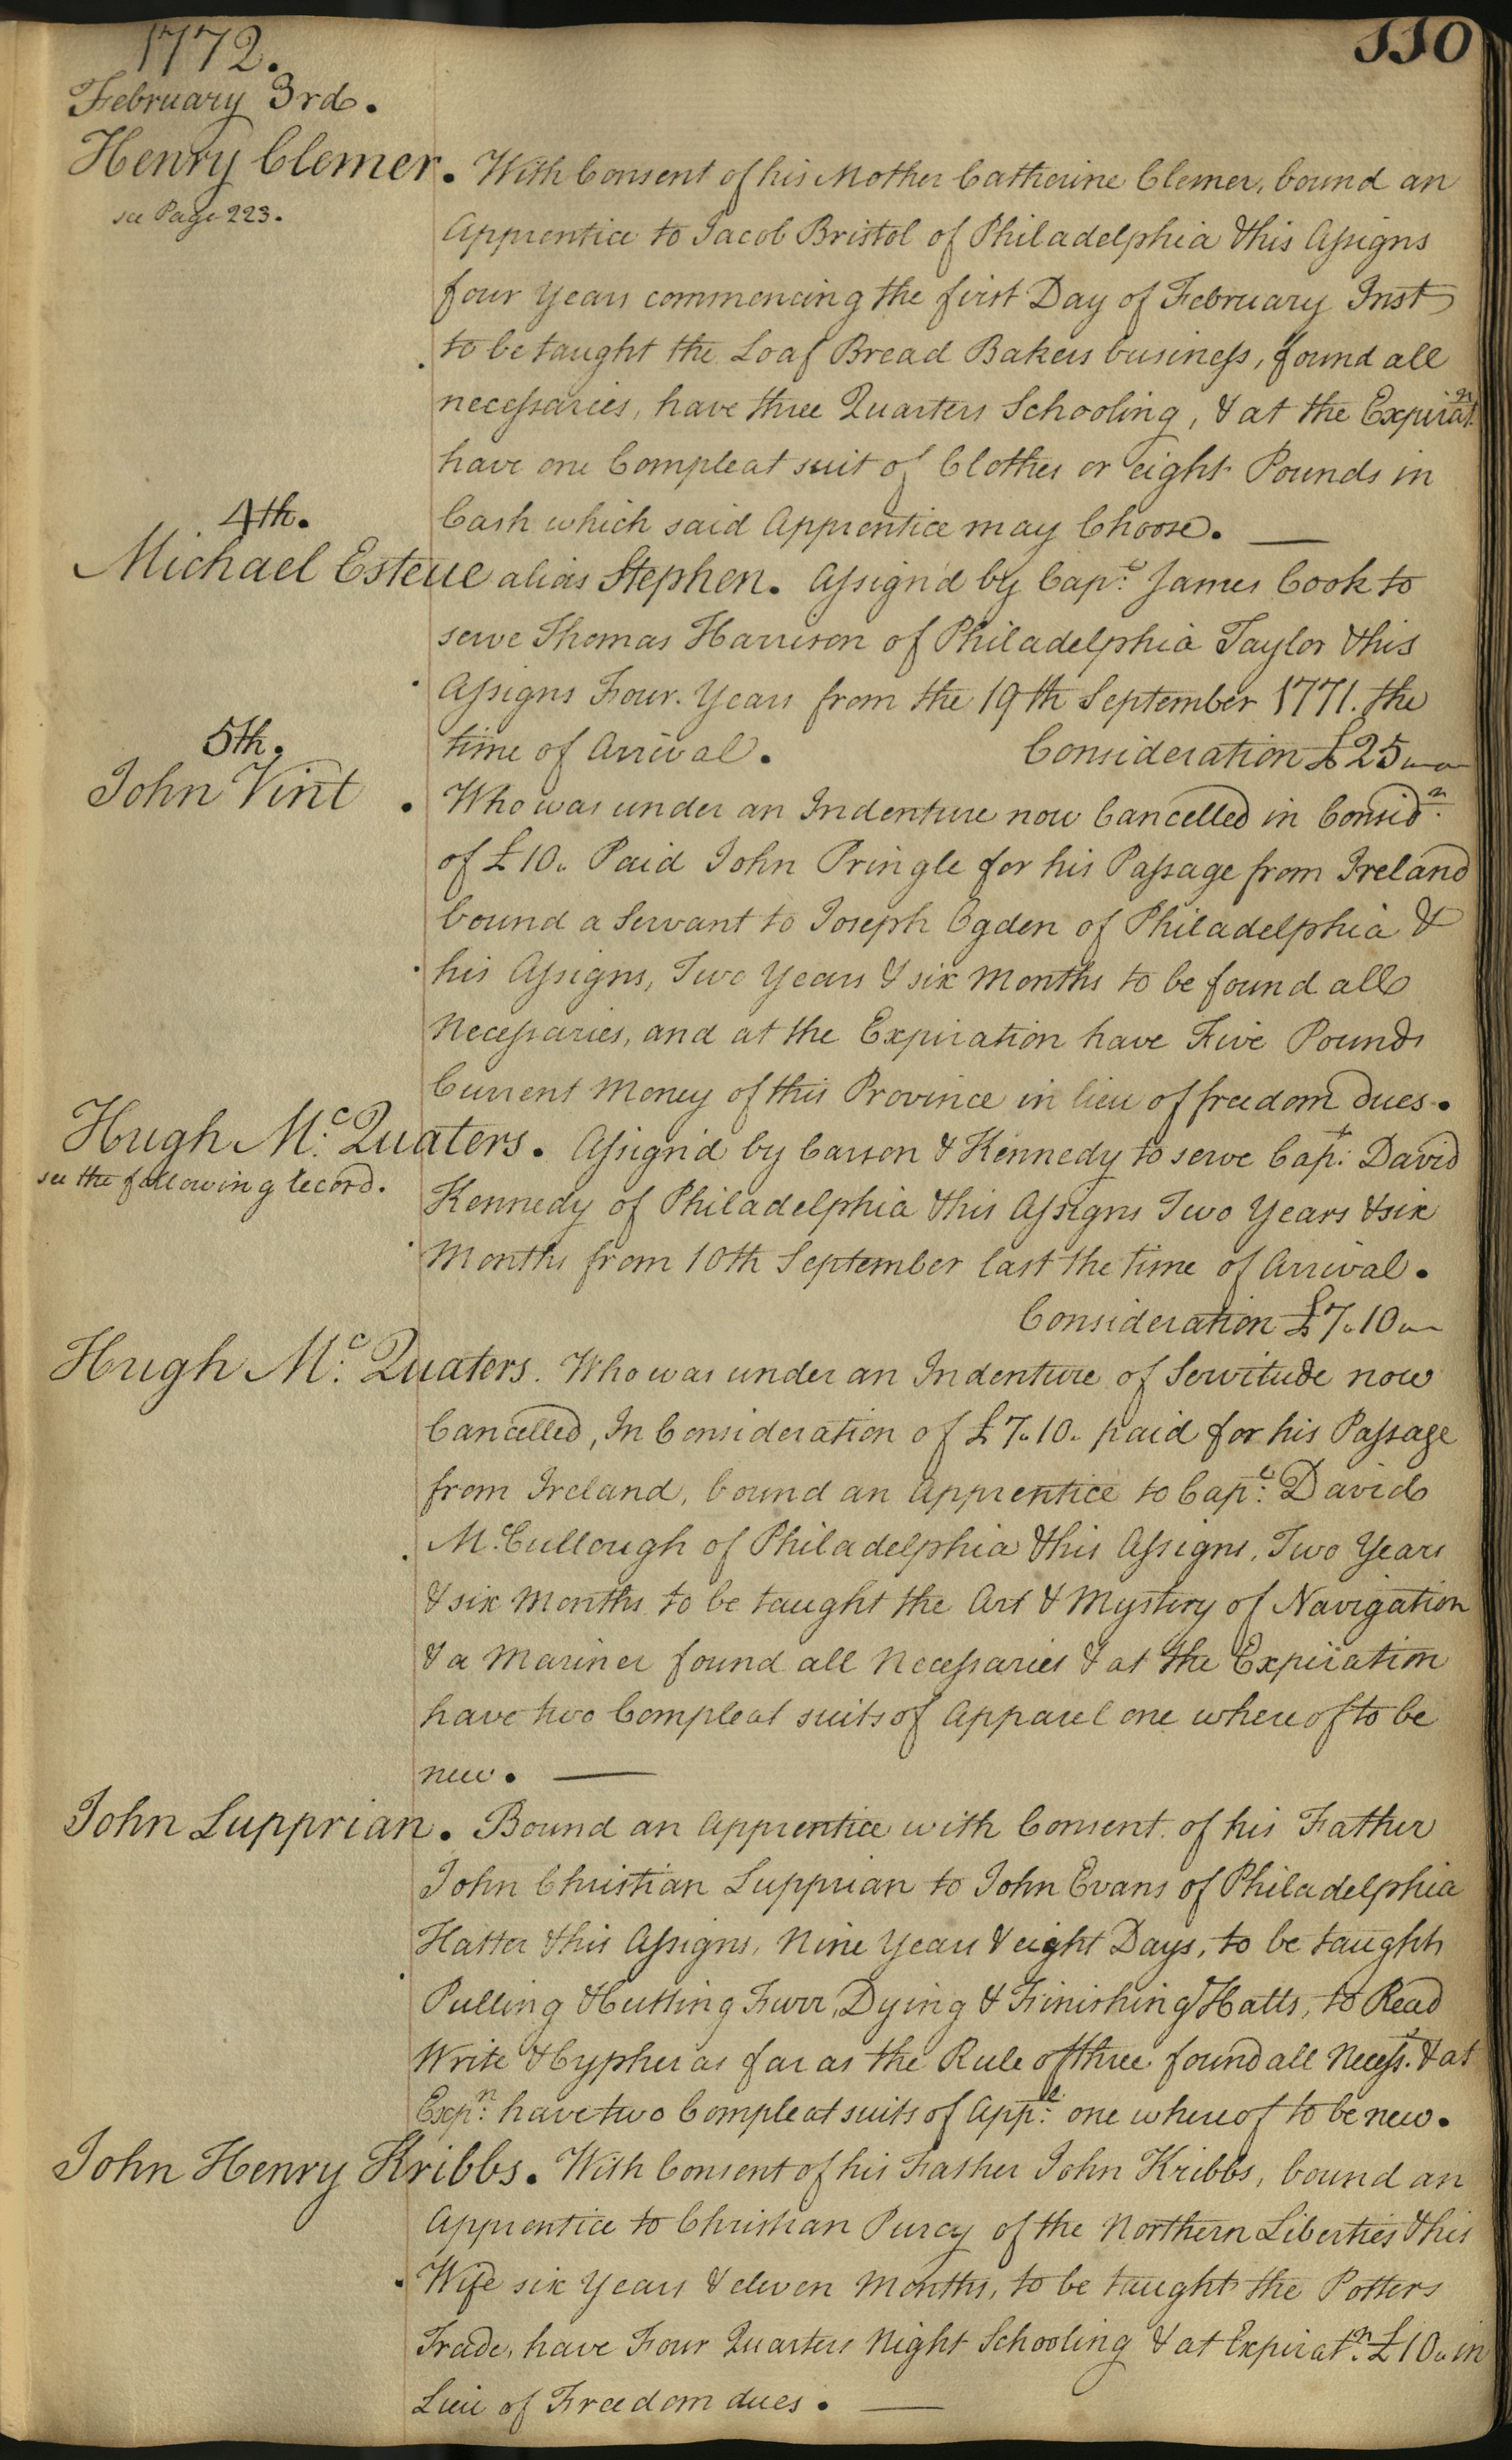 110
1772.
February 3rd.
Henry Clemer. With Consent of his Mother Catherine Clemer, bound an
see Page 223.
Apprentice to Jacob Bristol of Philadelphia & his Assigns
four Years commencing the first Day of February Inst
to be taught the Loaf Bread Bakers business, found all
necessaries, have three Quarters Schooling, & at the Expirat.n
have one Compleat suit of Clothes or eight Pounds in
Cash which said Apprentice may Choose.
4th.
Michael Esteue alias Stephen. Assign'd by Cap.t James Cook to
serve Thomas Harrison of Philadelphia Taylor & his
Assigns Four Years from the 19th September 1771. the
time of Arrival. Consideration £25
5th.
John Vint. Who was under an Indenture now Cancelled in Consid.n
of £10. Paid John Pringle for his Passage from Ireland
bound a Servant to Joseph Ogden of Philadelphia &
his Assigns, Two Years & six Months to be found all
Necessaries, and at the Expiration have Five Pounds
Current Money of this Province in lieu of freedom dues.
Hugh M.c Quaters. Assign'd by Carson & Kennedy to serve Cap.t David
see the following record.
Kennedy of Philadelphia & his Assigns Two Years & six
Months from 10th September last the time of Arrival.
Consideration £7.10
Hugh M.c Quaters. Who was under an Indenture of Servitude now
Cancelled, In Consideration of £7.10. paid for his Passage
from Ireland, bound an Apprentice to Cap.t David
M.cCullough of Philadelphia & his Assigns, Two Years
& six Months to be taught the Art & Mystery of Navigation
& a Mariner found all Necessaries & at the Expiration
have two Compleat suits of Apparel one whereof to be
new.
John Lupprian. Bound an Apprentice with Consent of his Father
John Christian Lupprian to John Evans of Philadelphia
Hatter & his Assigns, Nine Years & eight Days, to be taught
Pulling & Cutting Furr, Dying & Finishing Hatts, to Read
Write & Cypher as far as the Rule of three found all Necess.s & at
Exp.n have two Compleat suits of App.l one whereof to be new.
John Henry Kribbs. With Consent of his Father John Kribbs, bound an
Apprentice to Christian Purcy of the Northern Liberties & his
Wife six Years & eleven Months, to be taught the Potters
Trade, have Four Quarters Night Schooling & at Expirat.n £10. in
Lieu of Freedom dues.